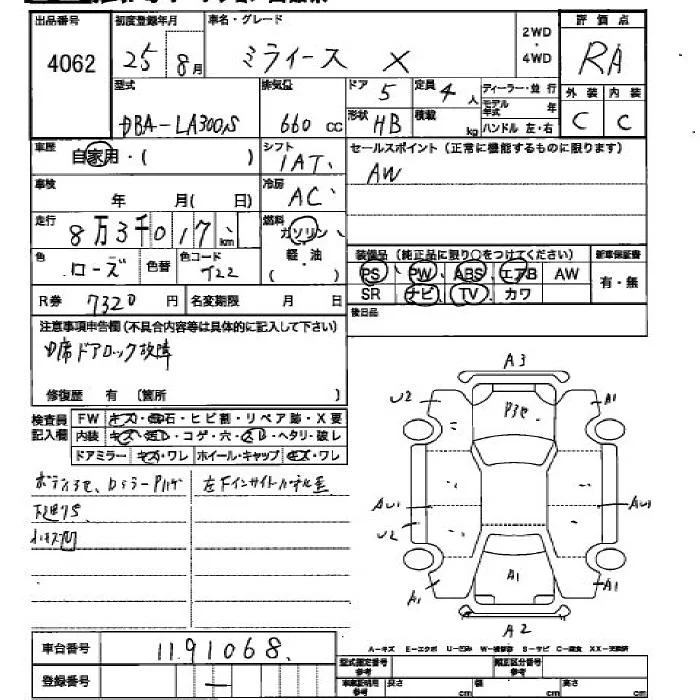 出品番号 初度登録年月 車名・グレード 2WD・4WD 評価点
4062 25 8月 ミライース X RA
型式 排気量 ドア 5 定員 4人 ディーラー・並行 外装 内装
DBA-LA300S 660cc 形状 HB 積載 kg モデル年式 年 C C
ハンドル 左・右
車歴 自家用・( ) シフト 1AT セールスポイント(正常に機能するものに限ります)
車検 年 月( 日) 冷房 AC AW
走行 8万3千017km 燃料 ガソリン・軽・油( )
色 ローズ 色替 色コード T22
装備品(純正品に限り○をつけてください) 新車保証書
PS PW ABS エアB AW 有・無
SR ナビ TV カワ
R券 7320円 名変期限 月 日 後日品
注意事項申告欄(不具合内容等は具体的に記入して下さい)
ドアロック故障
修復歴 有 (箇所 )
検査員記入欄 FW キズ・飛石・ヒビ割・リペア跡・X要
内装 キズ・汚レ・コゲ・穴・スレ・ヘタリ・破レ
ドアミラー キズ・ワレ ホイール・キャップ キズ・ワレ
左F
A3
U2 A1
P3
AU1 AU1
U2
A1 A1 A1
A2
A-キズ E-エクボ U-凹み W-補修跡 S-サビ C-腐食 XX-交換済
車台番号 1191068
登録番号 -
型式指定番号参考 類別区分番号参考
車庫証明用参考 長さ cm 幅 cm 高さ cm